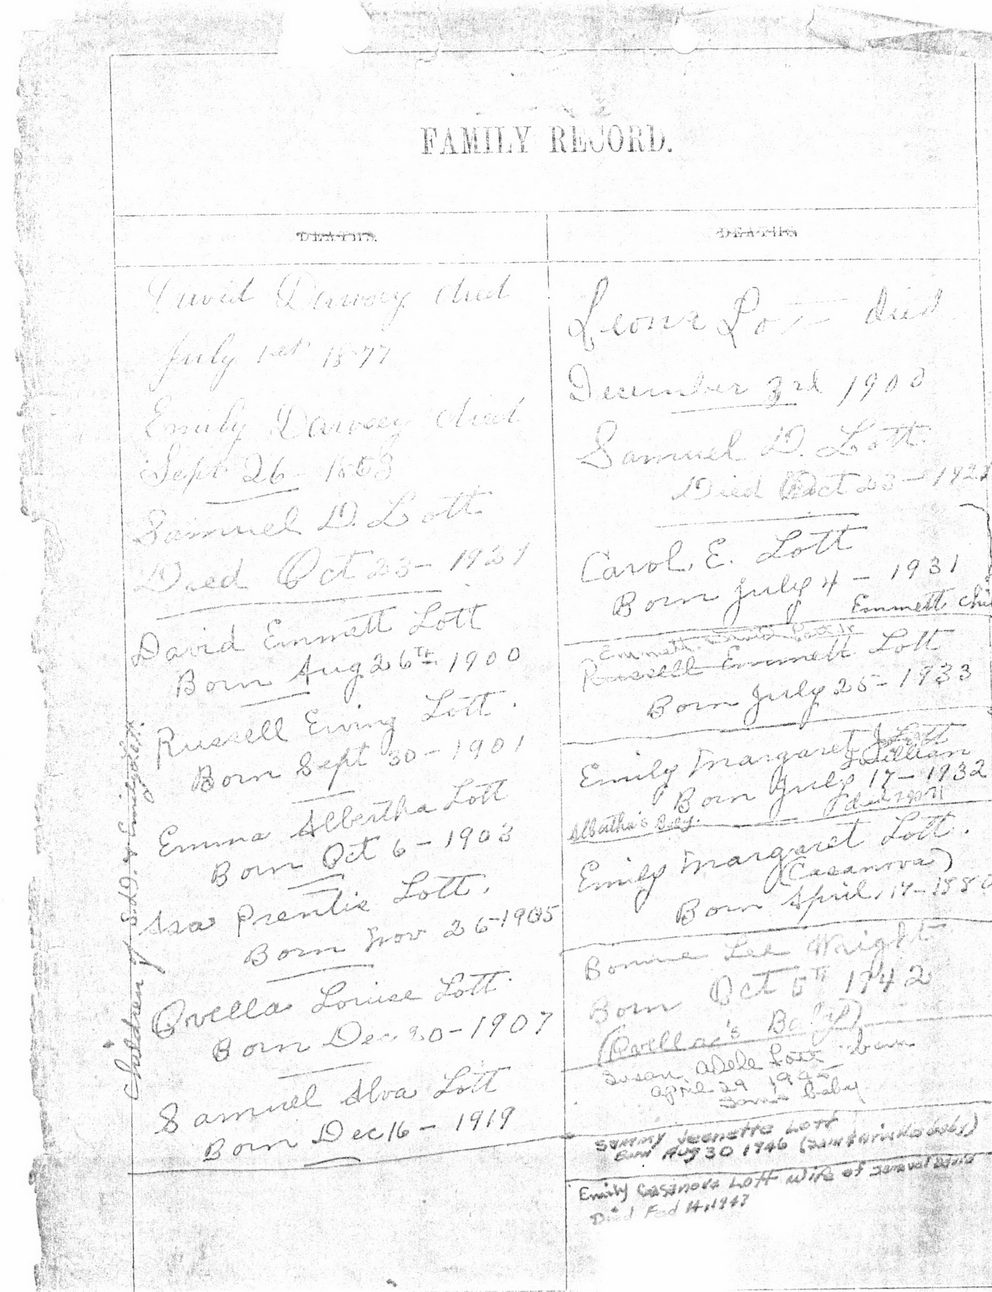 FAMILY RECORD.
DEATHS.
David Dawsey died
July 1st 1877
Emily Dawsey died
Sept 26 - 18
Samuel D. Lott
Died Oct 23 - 1921
David Emmett Lott
Born Aug 26TH 1900
Russell Ewing Lott.
Born Sept 30 - 1901
Emma Albertha Lott
Born Oct 6 - 1903
Asa Prentis Lott.
Born Nov 26 - 1905
Orvella Louise Lott.
Born Dec 30 - 1907
Samuel Alva Lott
Born Dec 16 - 1919
Children of S.D. & Emily Lott.
DEATHS
Leona Lott died
December 3rd 1900
Samuel D. Lott
Died Oct 23 - 192
Carol E. Lott
Born July 4 - 1931
Emmett chi
Emmett
Russell Emmett Lott
Born July 25 - 1933
Emily Margaret Lott
Born July 17 - 1932
Albertha's Baby.
Emily Margaret Lott.
(Casanova)
Born April, 17 - 188
Bonnie Lee Wright
Born Oct 5TH 1942
(Orvella's Baby)
Susan Adele Lott born
April 29 19
Sam's Baby
Sammy Jeenette Lott
Born Aug 30 1946
Emily Casanova Lott wife of
Died Feb 14, 1947